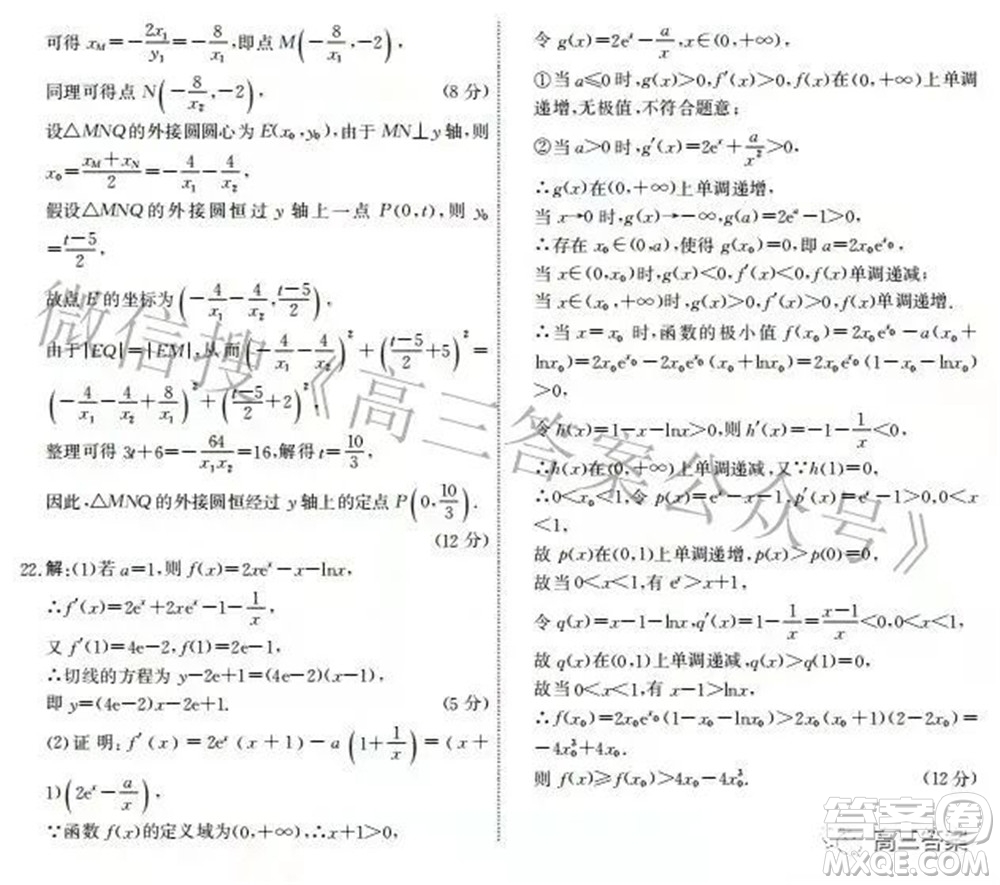 可得 x_M=-2x₁/y₁=-8/x₁,即点 M(-8/x₁,-2),
同理可得点 N(-8/x₂,-2), (8 分)
设△MNQ的外接圆圆心为 E(x₀,y₀),由于 MN⊥y 轴,则
x₀=(x_M+x_N)/2=-4/x₁-4/x₂,
假设△MNQ 的外接圆恒过 y 轴上一点 P(0,t),则 y₀
=(t-5)/2,
故点 E 的坐标为(-4/x₁-4/x₂,(t-5)/2),
由于|EQ|=|EM|,从而(-4/x₁-4/x₂)²+((t-5)/2+5)²=
(-4/x₁-4/x₂+8/x₁)²+((t-5)/2+2)²,
整理可得 3t+6=-64/(x₁x₂)=16,解得 t=10/3,
因此,△MNQ的外接圆恒经过 y 轴上的定点 P(0,10/3).
(12 分)
22.解:(1)若 a=1,则 f(x)=2xeˣ-x-lnx,
∴f′(x)=2eˣ+2xeˣ-1-1/x,
又 f′(1)=4e-2,f(1)=2e-1,
∴切线的方程为 y-2e+1=(4e-2)(x-1),
即 y=(4e-2)x-2e+1. (5 分)
(2)证明:f′(x)=2eˣ(x+1)-a(1+1/x)=(x+
1)(2eˣ-a/x),
∵函数 f(x)的定义域为(0,+∞),∴x+1>0,
令 g(x)=2eˣ-a/x,x∈(0,+∞),
①当 a≤0 时,g(x)>0,f′(x)>0,f(x)在(0,+∞)上单调
递增,无极值,不符合题意;
②当 a>0 时,g′(x)=2eˣ+a/x²>0,
∴g(x)在(0,+∞)上单调递增,
当 x→0 时,g(x)→-∞,g(a)=2eᵃ-1>0,
∴存在 x₀∈(0,a),使得 g(x₀)=0,即 a=2x₀e^x₀,
当 x∈(0,x₀)时,g(x)<0,f′(x)<0,f(x)单调递减;
当 x∈(x₀,+∞)时,g(x)>0,f′(x)>0,f(x)单调递增.
∴当 x=x₀ 时,函数的极小值 f(x₀)=2x₀e^x₀-a(x₀+
lnx₀)=2x₀e^x₀-2x₀e^x₀(x₀+lnx₀)=2x₀e^x₀(1-x₀-lnx₀)
>0,
令 h(x)=1-x-lnx>0,则 h′(x)=-1-1/x<0,
∴h(x)在(0,+∞)上单调递减,又∵h(1)=0,
∴0<x₀<1,令 p(x)=eˣ-x-1,p′(x)=eˣ-1>0,0<x
<1,
故 p(x)在(0,1)上单调递增,p(x)>p(0)=0,
故当 0<x<1,有 eˣ>x+1,
令 q(x)=x-1-lnx,q′(x)=1-1/x=(x-1)/x<0,0<x<1,
故 q(x)在(0,1)上单调递减,q(x)>q(1)=0,
故当 0<x<1,有 x-1>lnx,
∴f(x₀)=2x₀e^x₀(1-x₀-lnx₀)>2x₀(x₀+1)(2-2x₀)=
-4x₀³+4x₀.
则 f(x)≥f(x₀)>4x₀-4x₀³. (12 分)
微信搜《高三答案公众号》
答案圈
高三答案
MXQE.COM